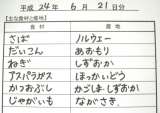 平成 24年 6月 21日分
【主な食材と産地】
食材 産地
さば ノルウェー
だいこん あおもり
ねぎ しずおか
アスパラガス ほっかいどう
かつおぶし かごしま しずおか
じゃがいも ながさき